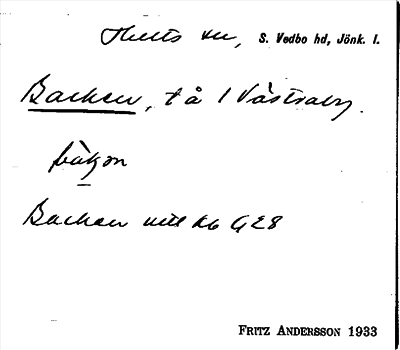 Hults sn, S. Vedbo hd, Jönk. l.
Backen, t å 1 Västraby.
bàkən
Backen utt kb G E8
FRITZ ANDERSSON 1933